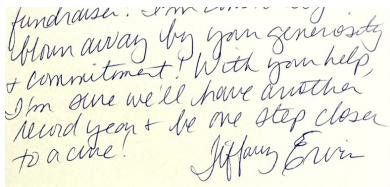 fundraiser. I'm
blown away by your generosity
+ commitment! With your help,
I'm sure we'll have another
record year + be one step closer
to a cure!
Tiffany Ervin